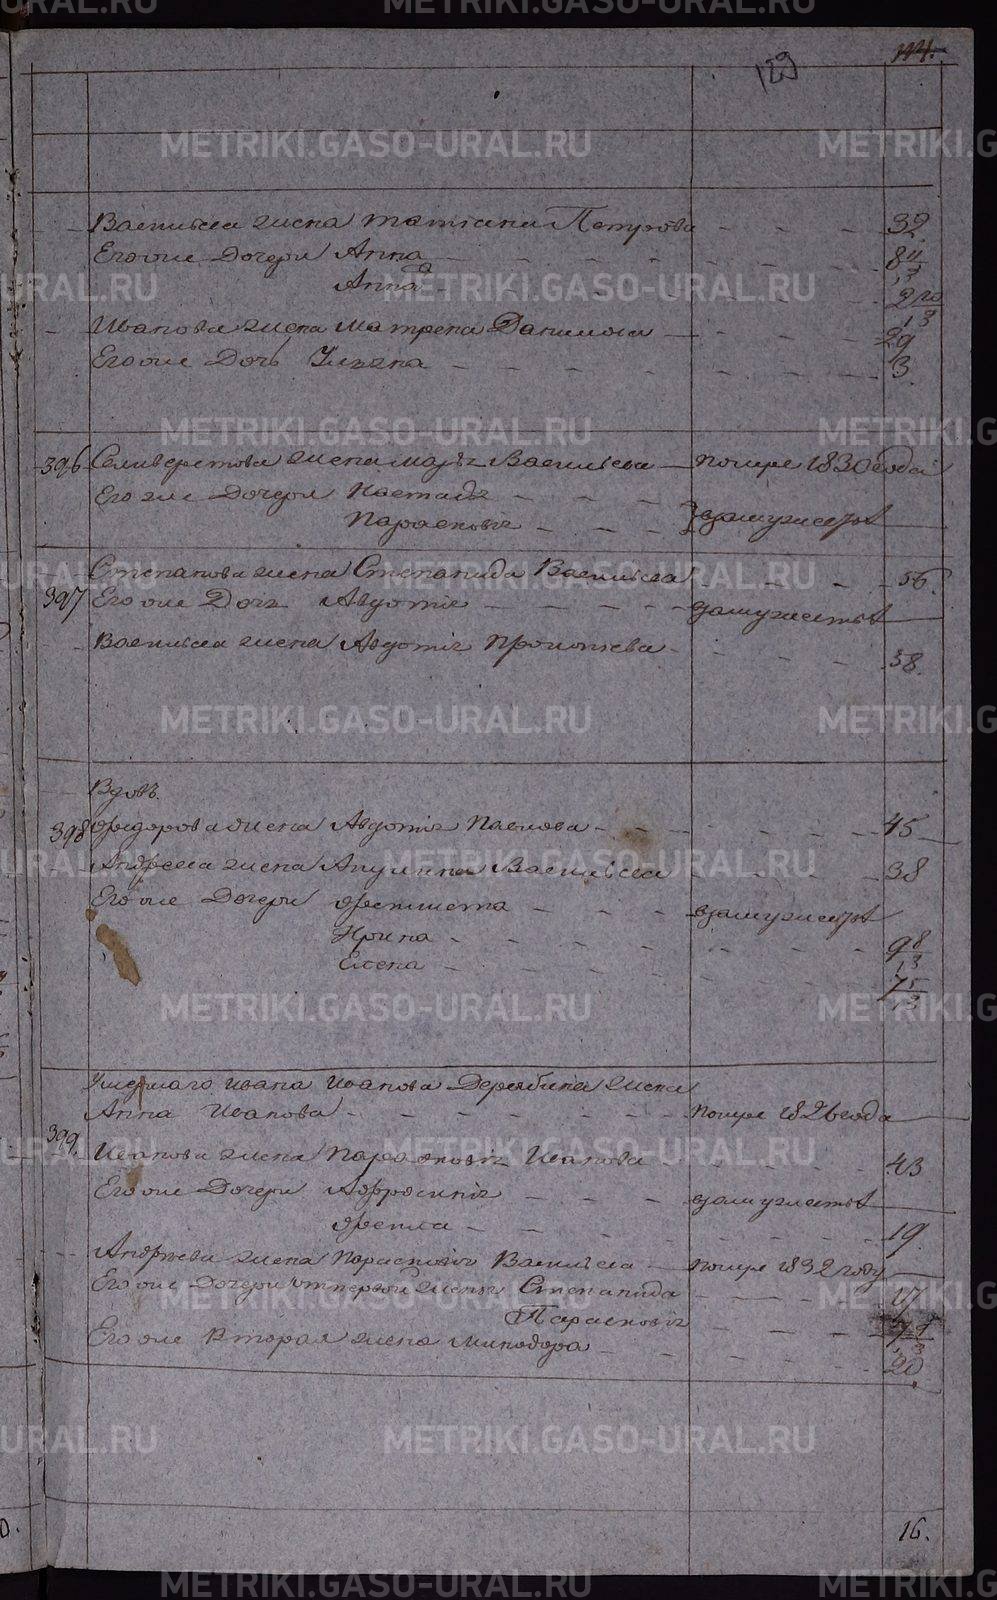 129 144.
Васильева жена Татиана Петрова - - - 32.
Его же Дочери Анна - - - 8 11/13
Анна - - - 2 10/13
Иванова жена Матрена Данилова - - - 29
Его же Дочь Ульяна - - - 3.
396 Селиверстова жена Марья Васильева — помре 1830 года
Его же Дочери Настасья - - -
Парасковья - - - } взамужестве
Степанова жена Степанида Васильева - - - 56.
397 Его же Дочь Авдотья - - - взамужестве
Васильева жена Авдотья Прокопьева - - - 38.
Вдовы
398 Федорова жена Авдотья Павлова - - - 45
Андреева жена Акулина Васильева - - - 38
Его же Дочери Фетиста - - - взамужестве
Ирина - - - 9 8/13
Елена - - - 7 5/13
Умершаго Ивана Иванова Дерябина жена
Анна Иванова - - - помре 1826 года
399. Иванова жена Парасковья Иванова - - - 43
Его же Дочери Афросинья - - - взамужестве
Фекла - - - 19.
Андреева жена Парасковья Васильева — помре 1832 году
Его же Дочери от первой жены Степанида - - - 17
Парасковья - - -
Его же вторая жена Минодора - - - 20.
16.
METRIKI.GASO-URAL.RU